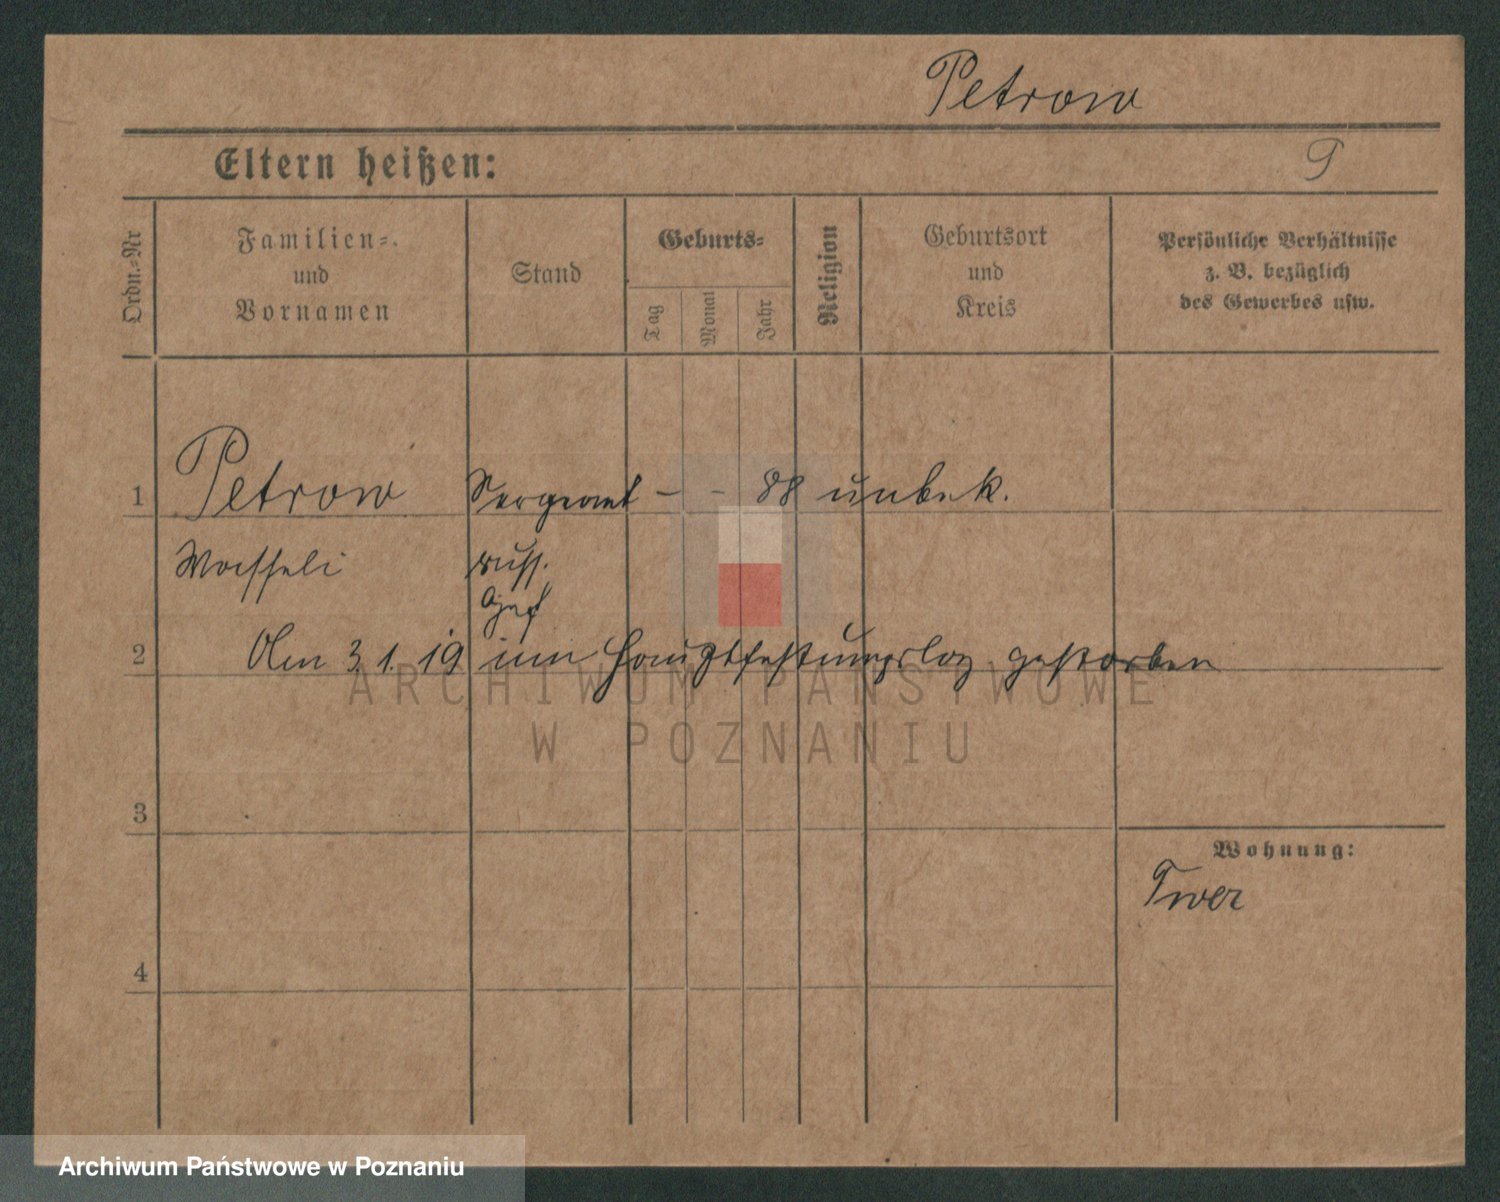 Petrow
Eltern heißen:
P
Ordn.-Nr
Familien-
und
Vornamen
Stand
Geburts-
Tag
Monat
Jahr
Religion
Geburtsort
und
Kreis
Persönliche Verhältnisse
z. B. bezüglich
des Gewerbes usw.
1 Petrow Sergeant - - 88 unbek.
Wasseli russ.
Gef
2 Am 3.1.19 im Hauptfestungslaz gestorben
ARCHIWUM PAŃSTWOWE
W POZNANIU
3
Wohnung:
Twer
4
Archiwum Państwowe w Poznaniu